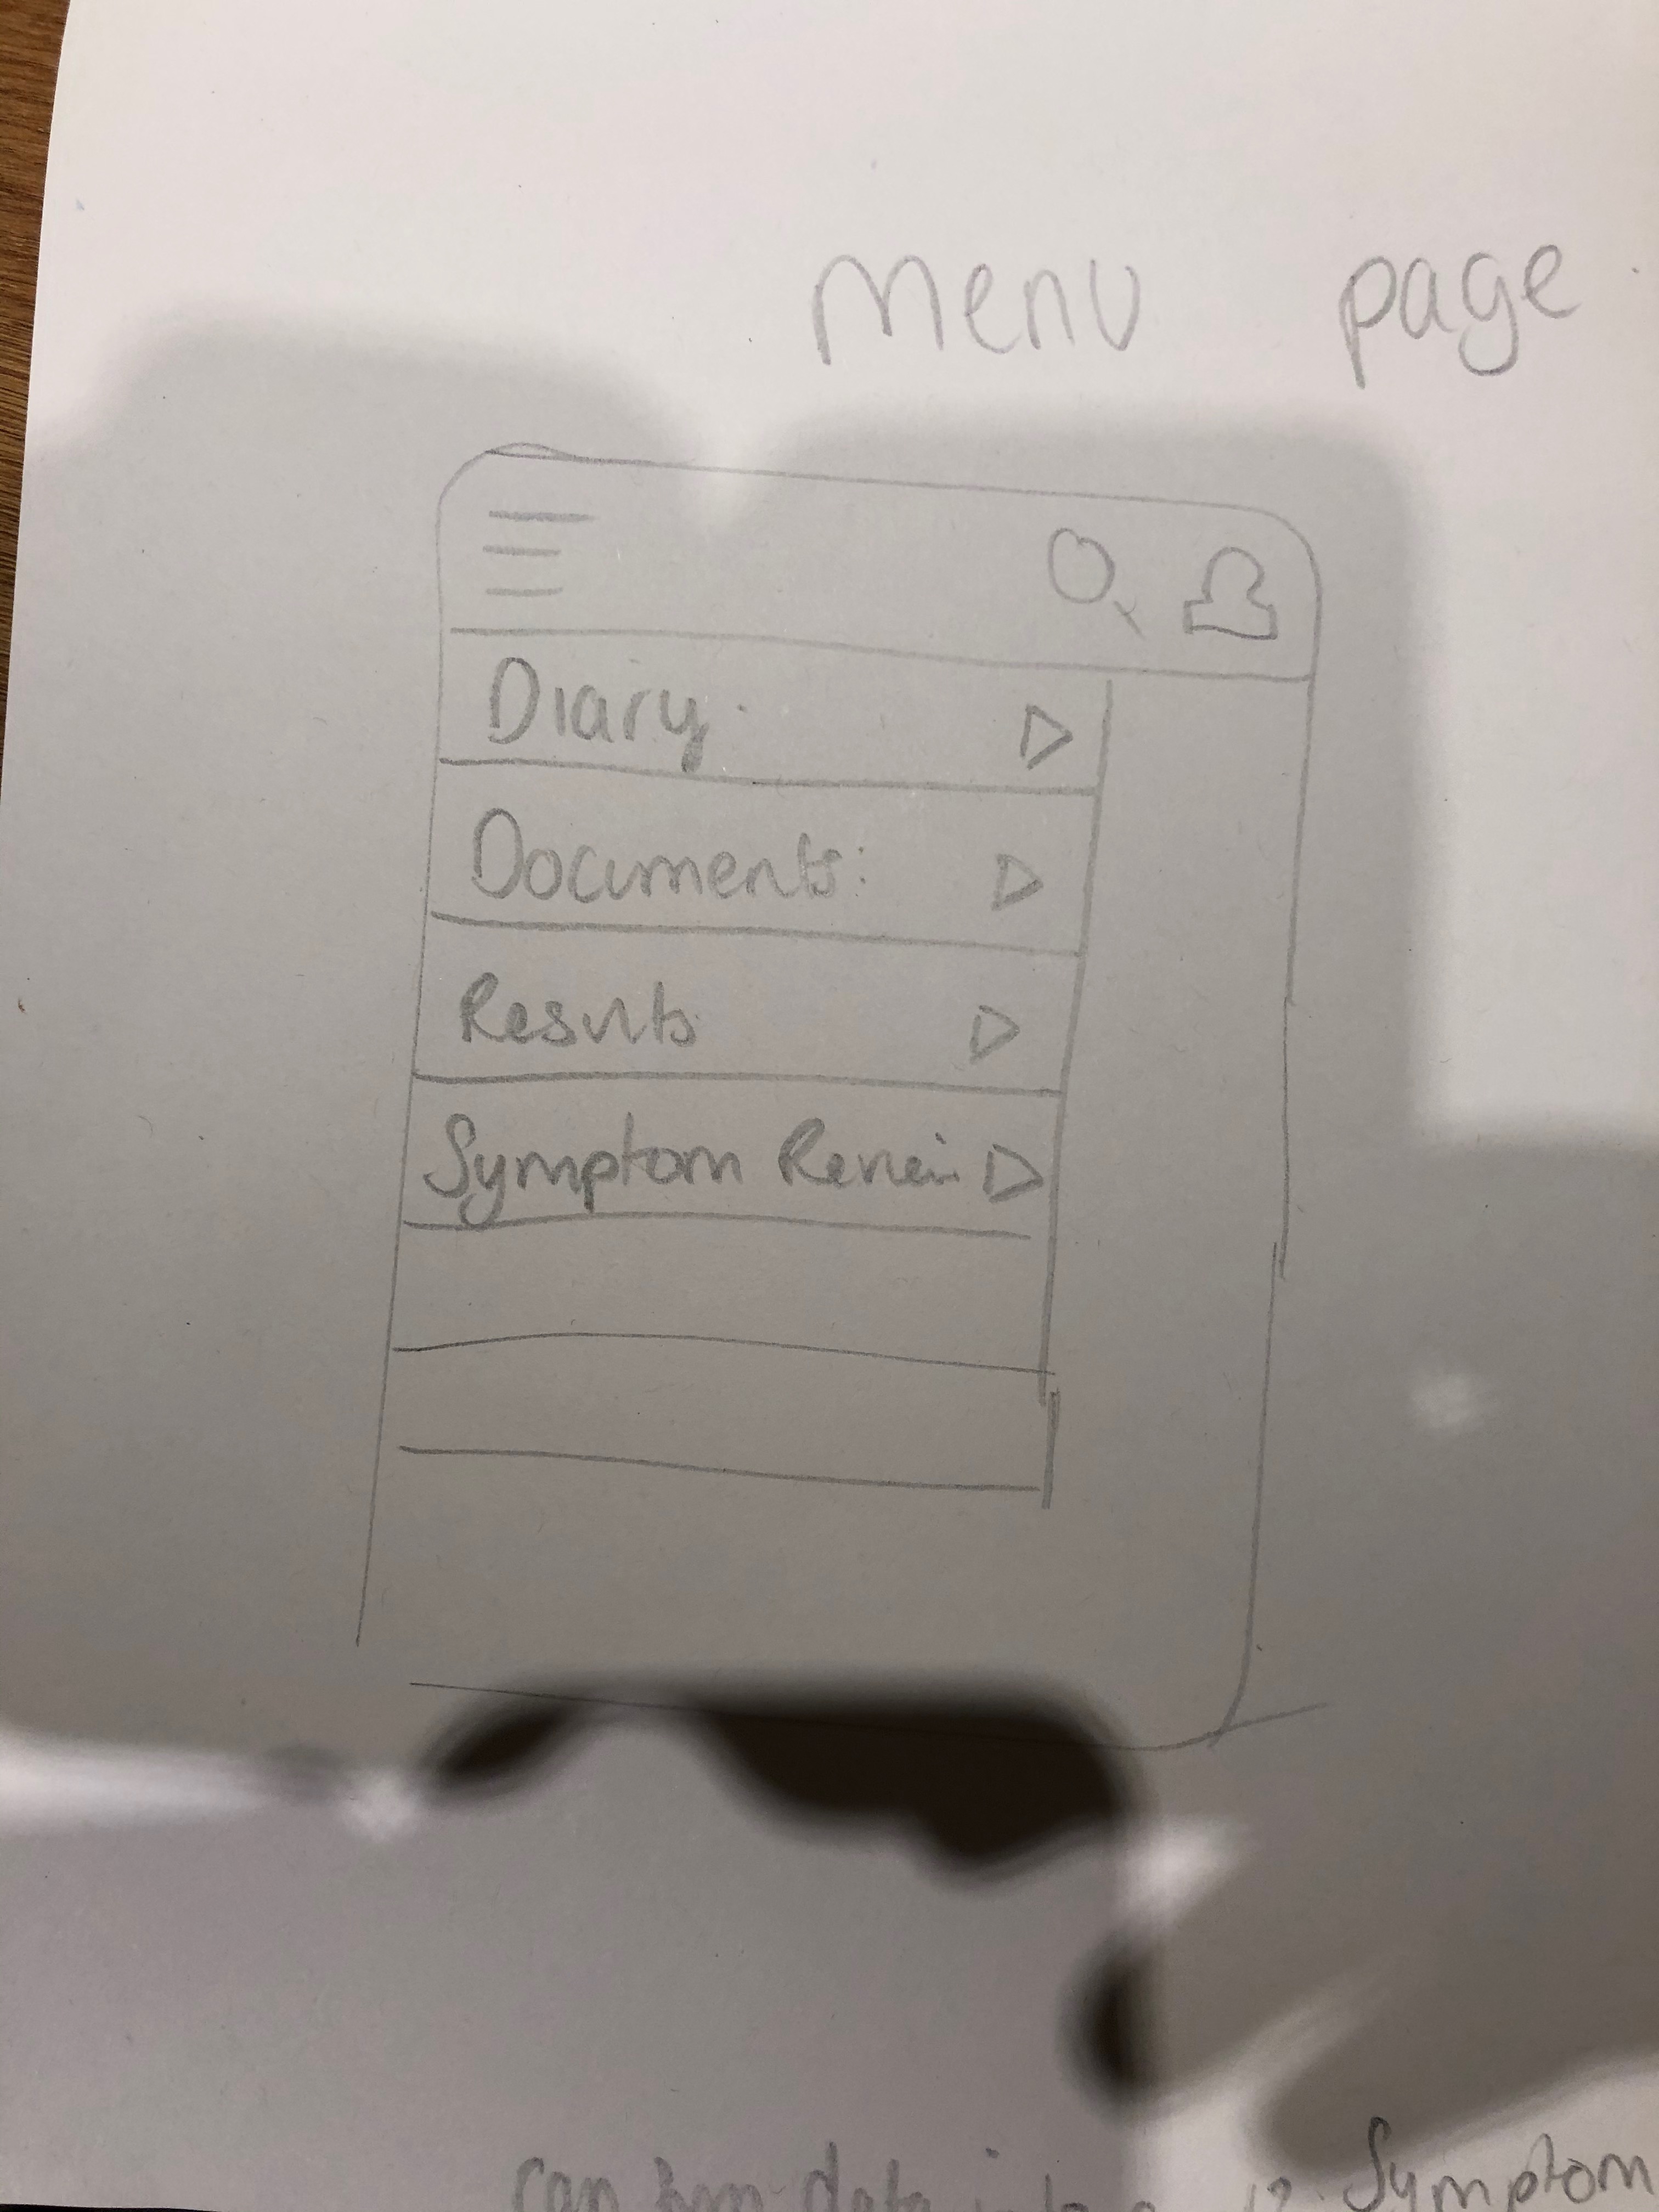 menu page
Diary
Documents
Results
Symptom
can data
Symptom